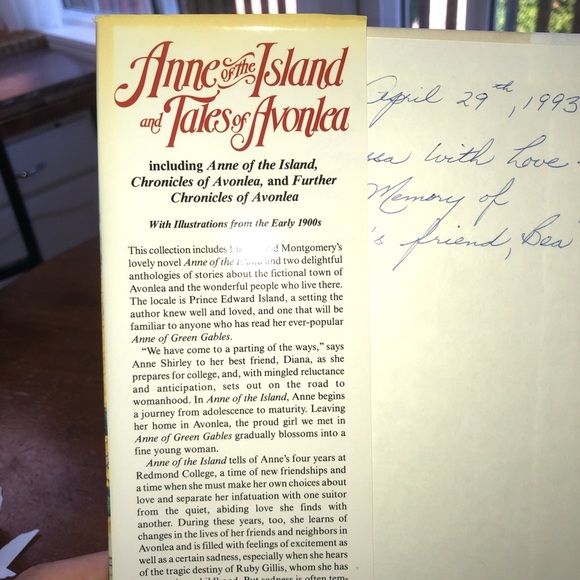 Anne of the Island
and Tales of Avonlea
including Anne of the Island,
Chronicles of Avonlea, and Further
Chronicles of Avonlea
With Illustrations from the Early 1900s
This collection includes Montgomery's
lovely novel Anne of the Island and two delightful
anthologies of stories about the fictional town of
Avonlea and the wonderful people who live there.
The locale is Prince Edward Island, a setting the
author knew well and loved, and one that will be
familiar to anyone who has read her ever-popular
Anne of Green Gables.
"We have come to a parting of the ways," says
Anne Shirley to her best friend, Diana, as she
prepares for college, and, with mingled reluctance
and anticipation, sets out on the road to
womanhood. In Anne of the Island, Anne begins
a journey from adolescence to maturity. Leaving
her home in Avonlea, the proud girl we met in
Anne of Green Gables gradually blossoms into a
fine young woman.
Anne of the Island tells of Anne's four years at
Redmond College, a time of new friendships and
a time when she must make her own choices about
love and separate her infatuation with one suitor
from the quiet, abiding love she finds with
another. During these years, too, she learns of
changes in the lives of her friends and neighbors in
Avonlea and is filled with feelings of excitement as
well as a certain sadness, especially when she hears
of the tragic destiny of Ruby Gillis, whom she has
But sadness is often tem-
April 29th, 1993
ssa with Love
Memory of
's friend, Bea